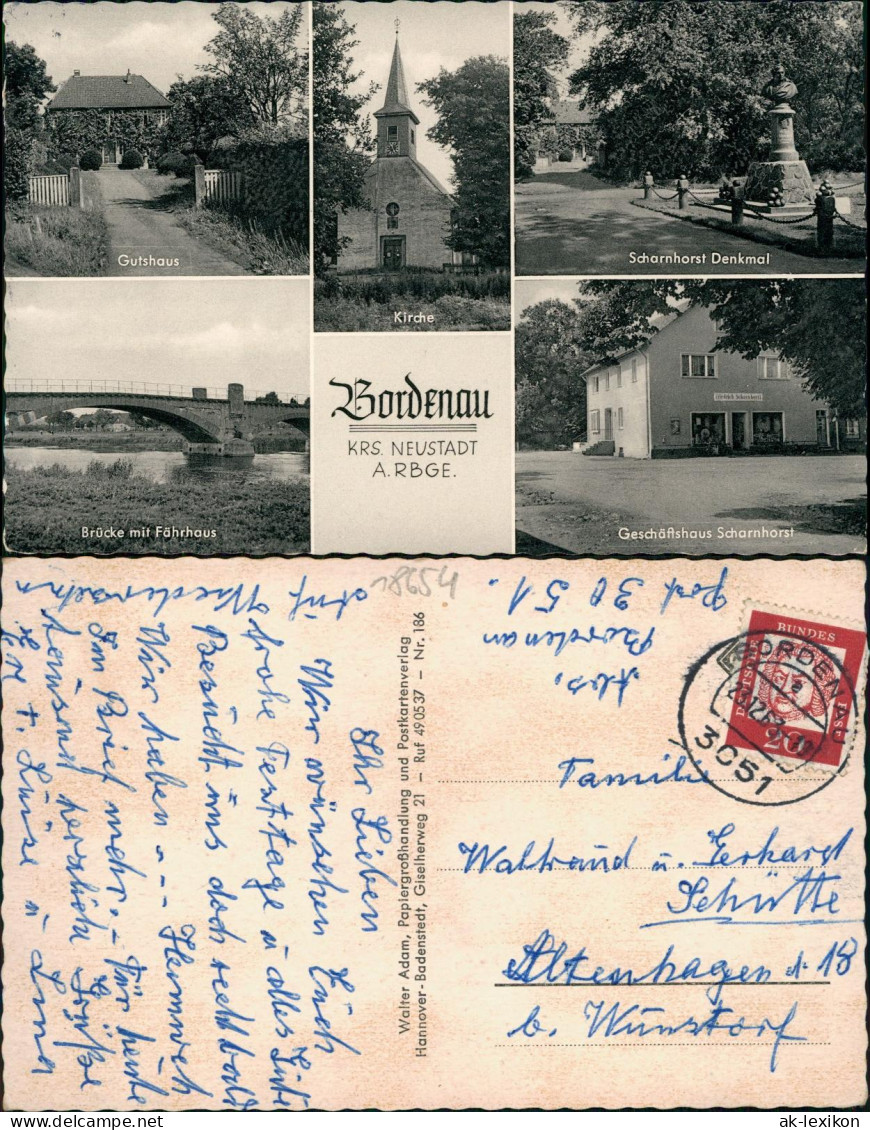 Gutshaus
Kirche
Scharnhorst Denkmal
Brücke mit Fährhaus
Bordenau
KRS. NEUSTADT
A. RBGE.
Geschäftshaus Scharnhorst
18654
Ihr Lieben
Wir wünschen Euch
frohe Festtage u alles Gute
Besucht uns doch recht bald
Wir haben --- Heimweh
Im Brief mehr. - Für heute
tausend herzliche Grüße
Luise u
Auf
Wiedersehn
Walter Adam, Papiergroßhandlung und Postkartenverlag
Hannover-Badenstedt, Giselherweg 21 – Ruf 490537 – Nr. 186
Abs.
Bordenau
Post 3051.
DEUTSCHE
BUNDES
POST
20
BORDENAU
3051
Familie
Waltraud u. Gerhard
Schütte
Altenhagen № 18
b. Wunstorf
www.delcampe.net
ak-lexikon